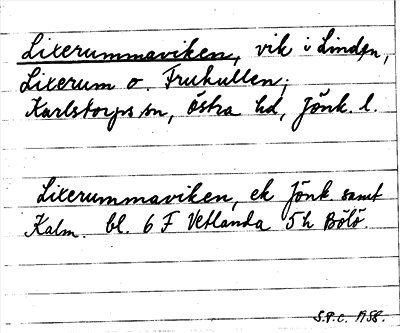 Lixerummaviken, vik i Linden,
Lixerum o. Frukullen;
Karlstorps sn, Östra hd, Jönk. l.
Lixerummaviken, ek Jönk. samt
Kalm. bl. 6 F Vetlanda 5h Bölö.
S.P.C. 1958.